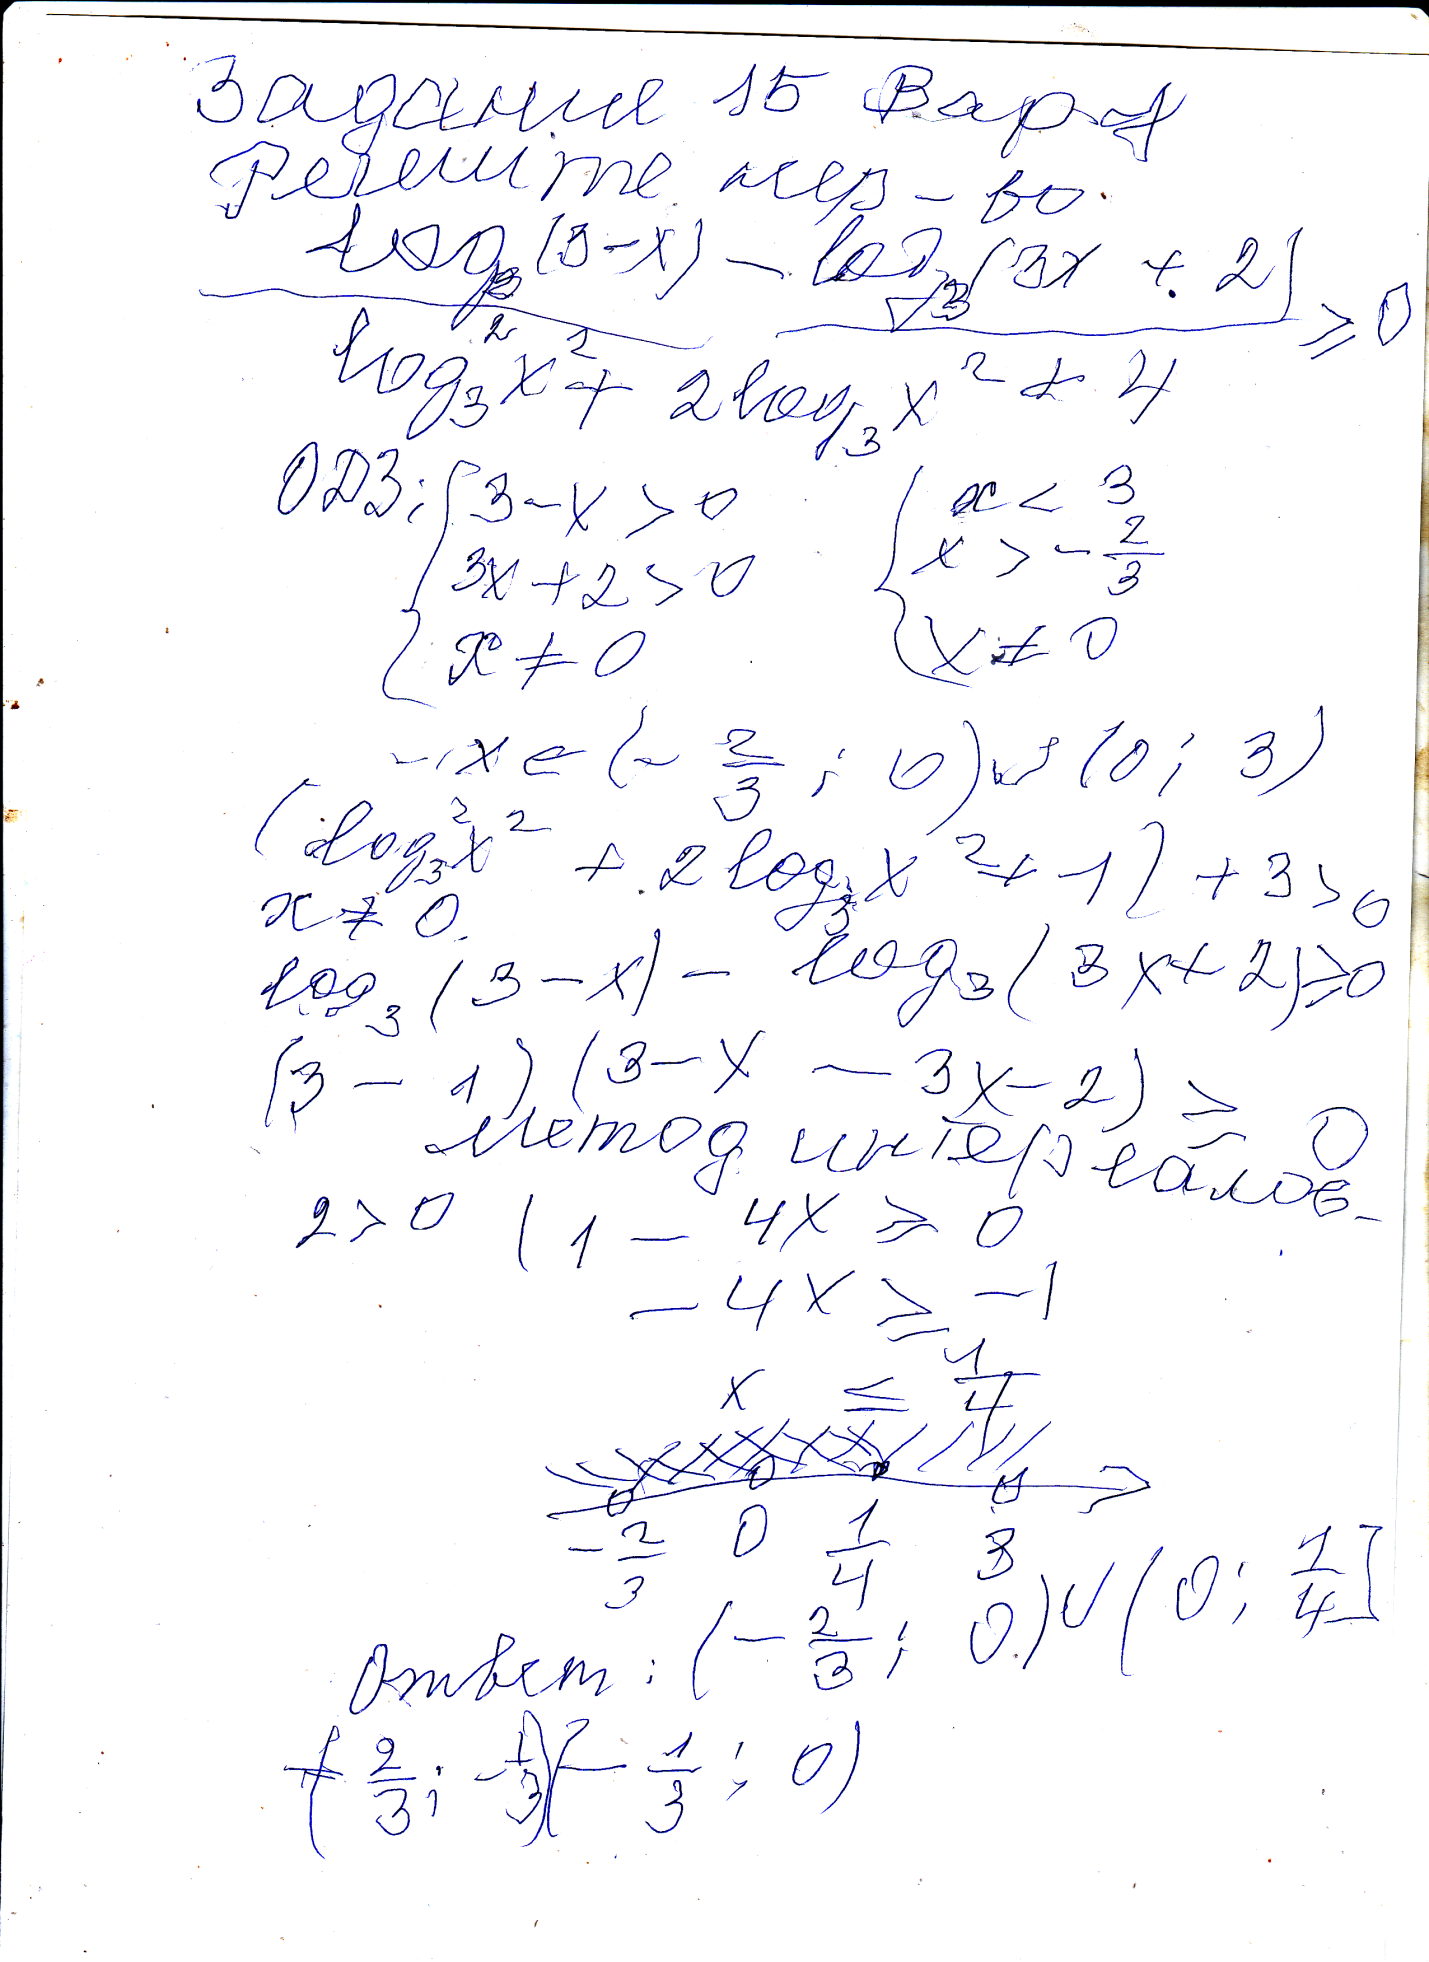 Задание 15 Вар 1
Решите нер-во
log₃(3-x) - log₃(3x + 2)
≥ 0
log₃²x² + 2log₃x² + 4
ОДЗ: { 3-x > 0 { x < 3
3x+2 > 0 x > -2/3
x ≠ 0 x ≠ 0
x ∈ (-2/3; 0) ∪ (0; 3)
(log₃²x² + 2log₃x² + 1) + 3 > 0
x ≠ 0
log₃(3-x) - log₃(3x+2) ≥ 0
(3 - 1)(3-x - 3x-2) ≥ 0
метод интервалов
2 > 0 (1 - 4x ≥ 0
-4x ≥ -1
x ≤ 1/4
-2/3 0 1/4 3
Ответ: (-2/3; 0) ∪ (0; 1/4]
(-2/3; -1/3)(-1/3; 0)